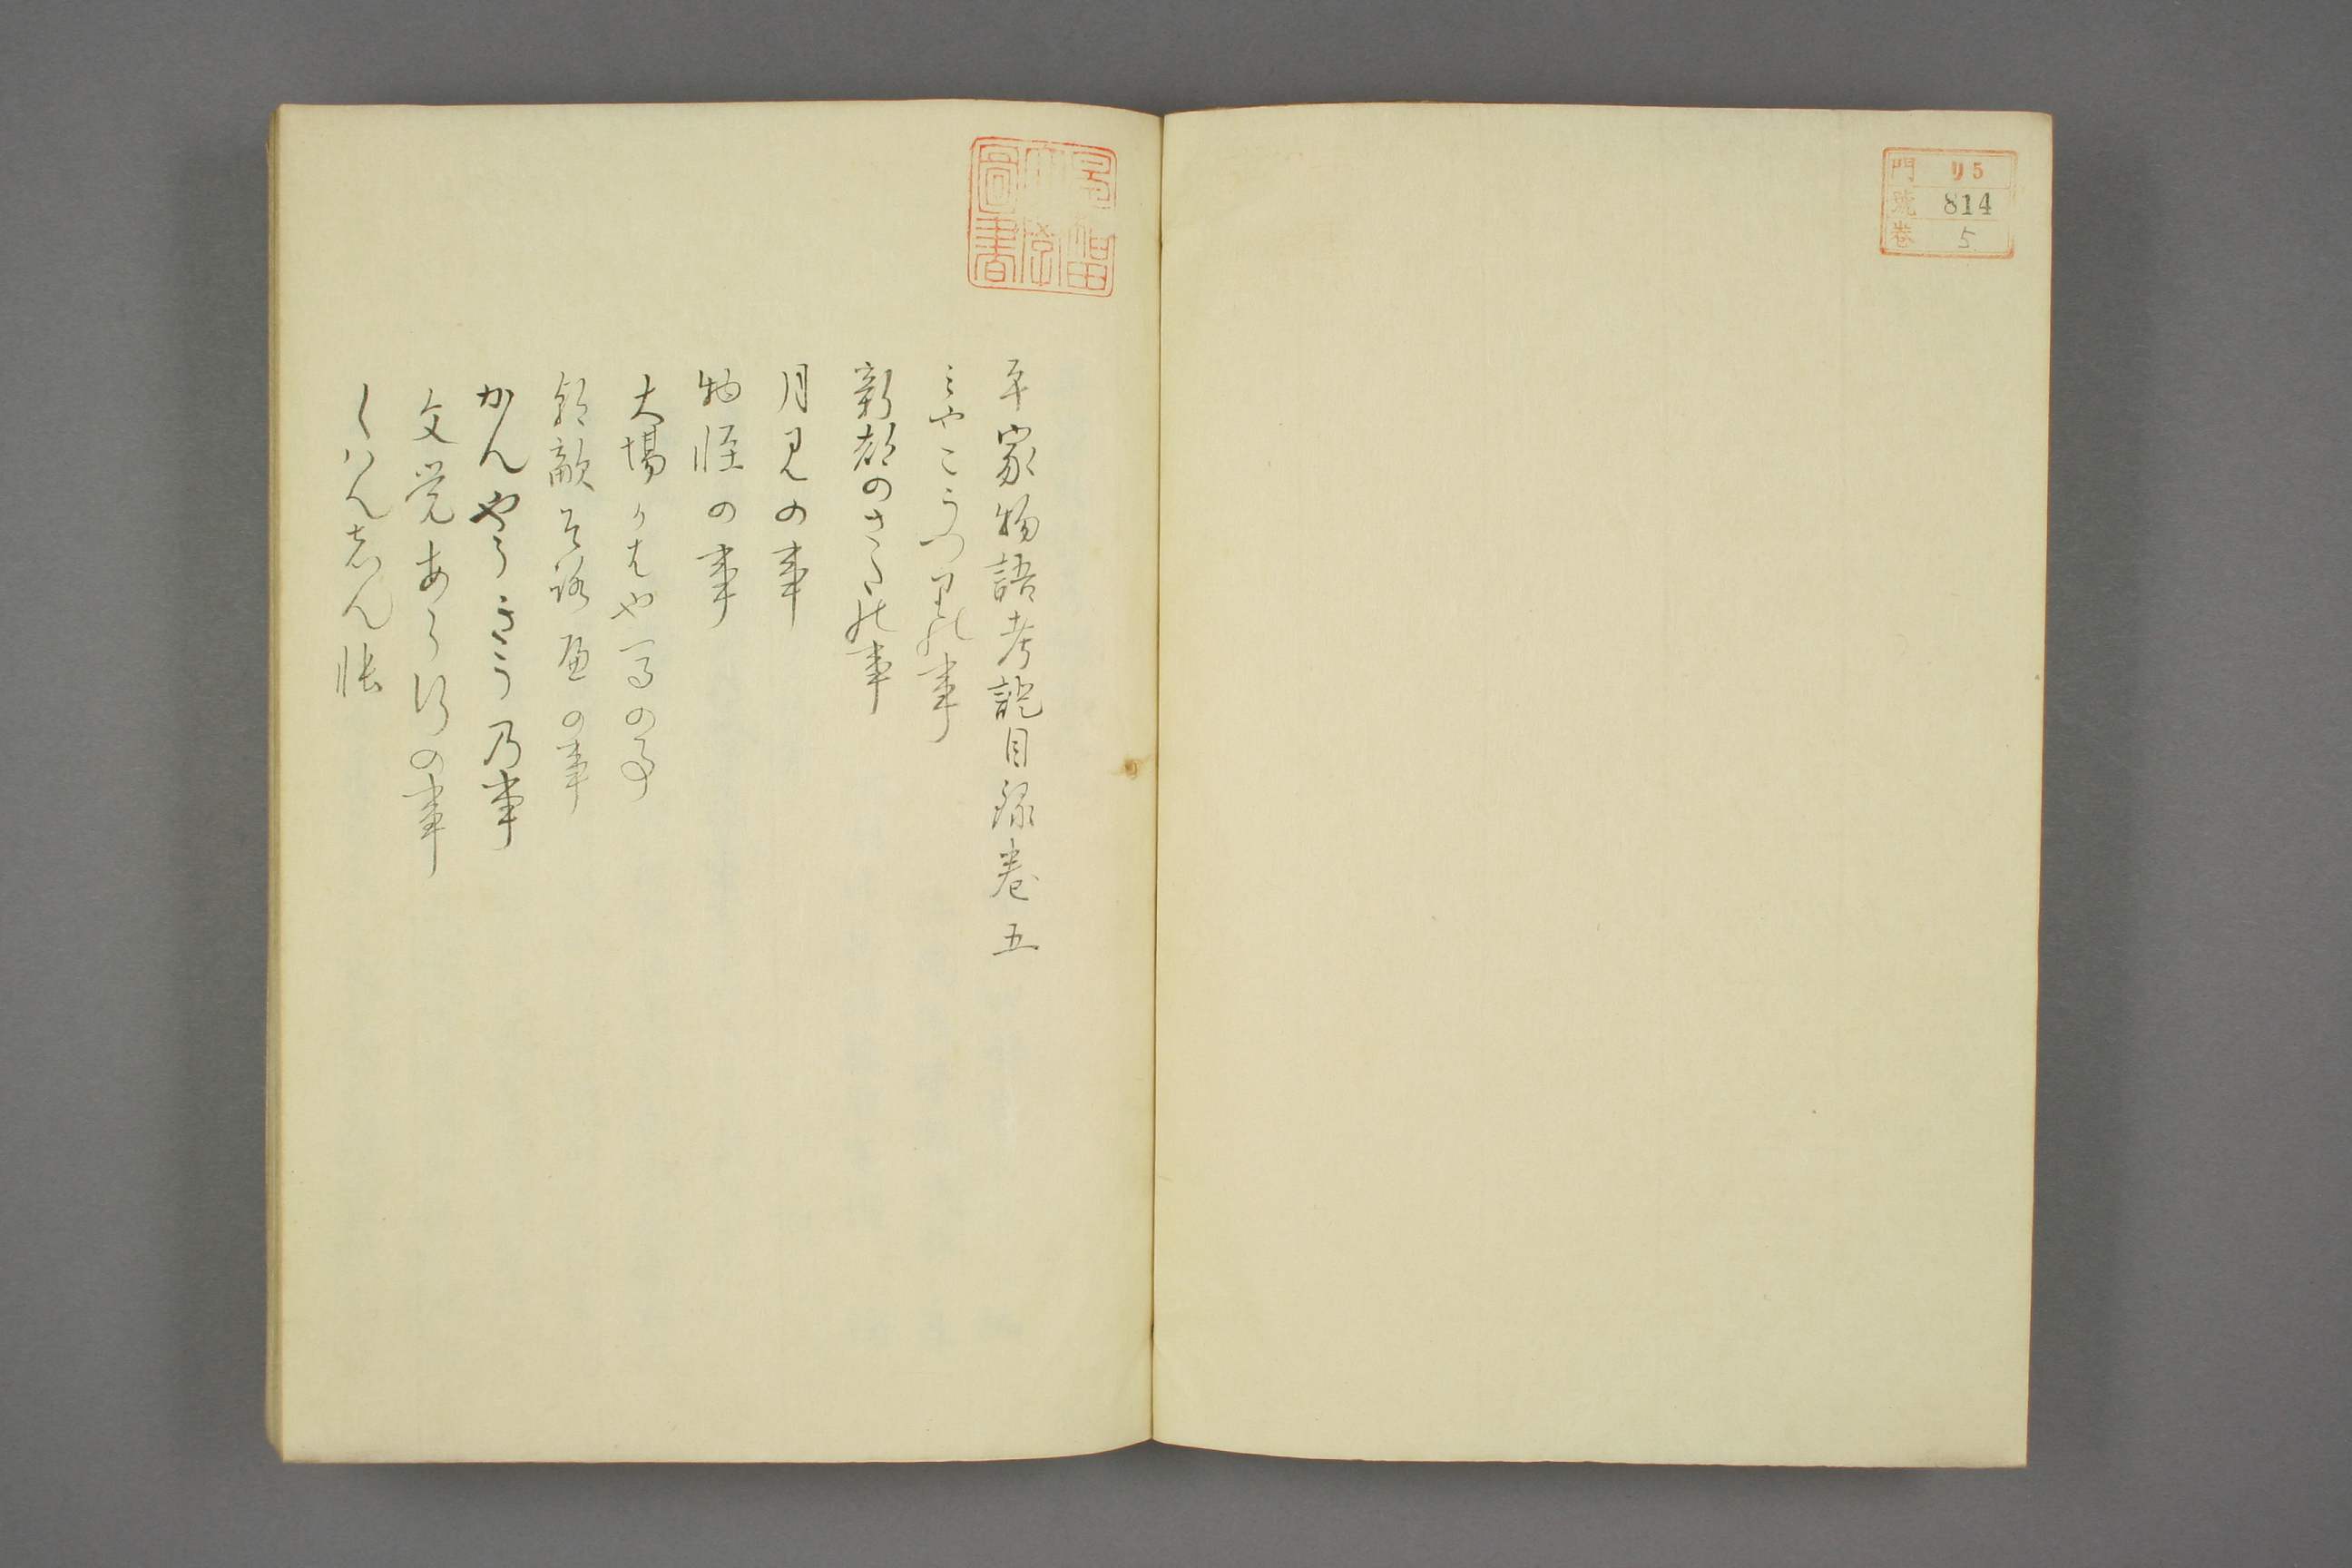 門 リ5
號 814
卷 5
圖書
平家物語考證目録巻五
みやこうつりの事
新都のさたの事
月見の事
物怪の事
大場かはや馬の事
朝敵そろへの事
かんやうきう乃事
文覚あら行の事
くはんしん帳